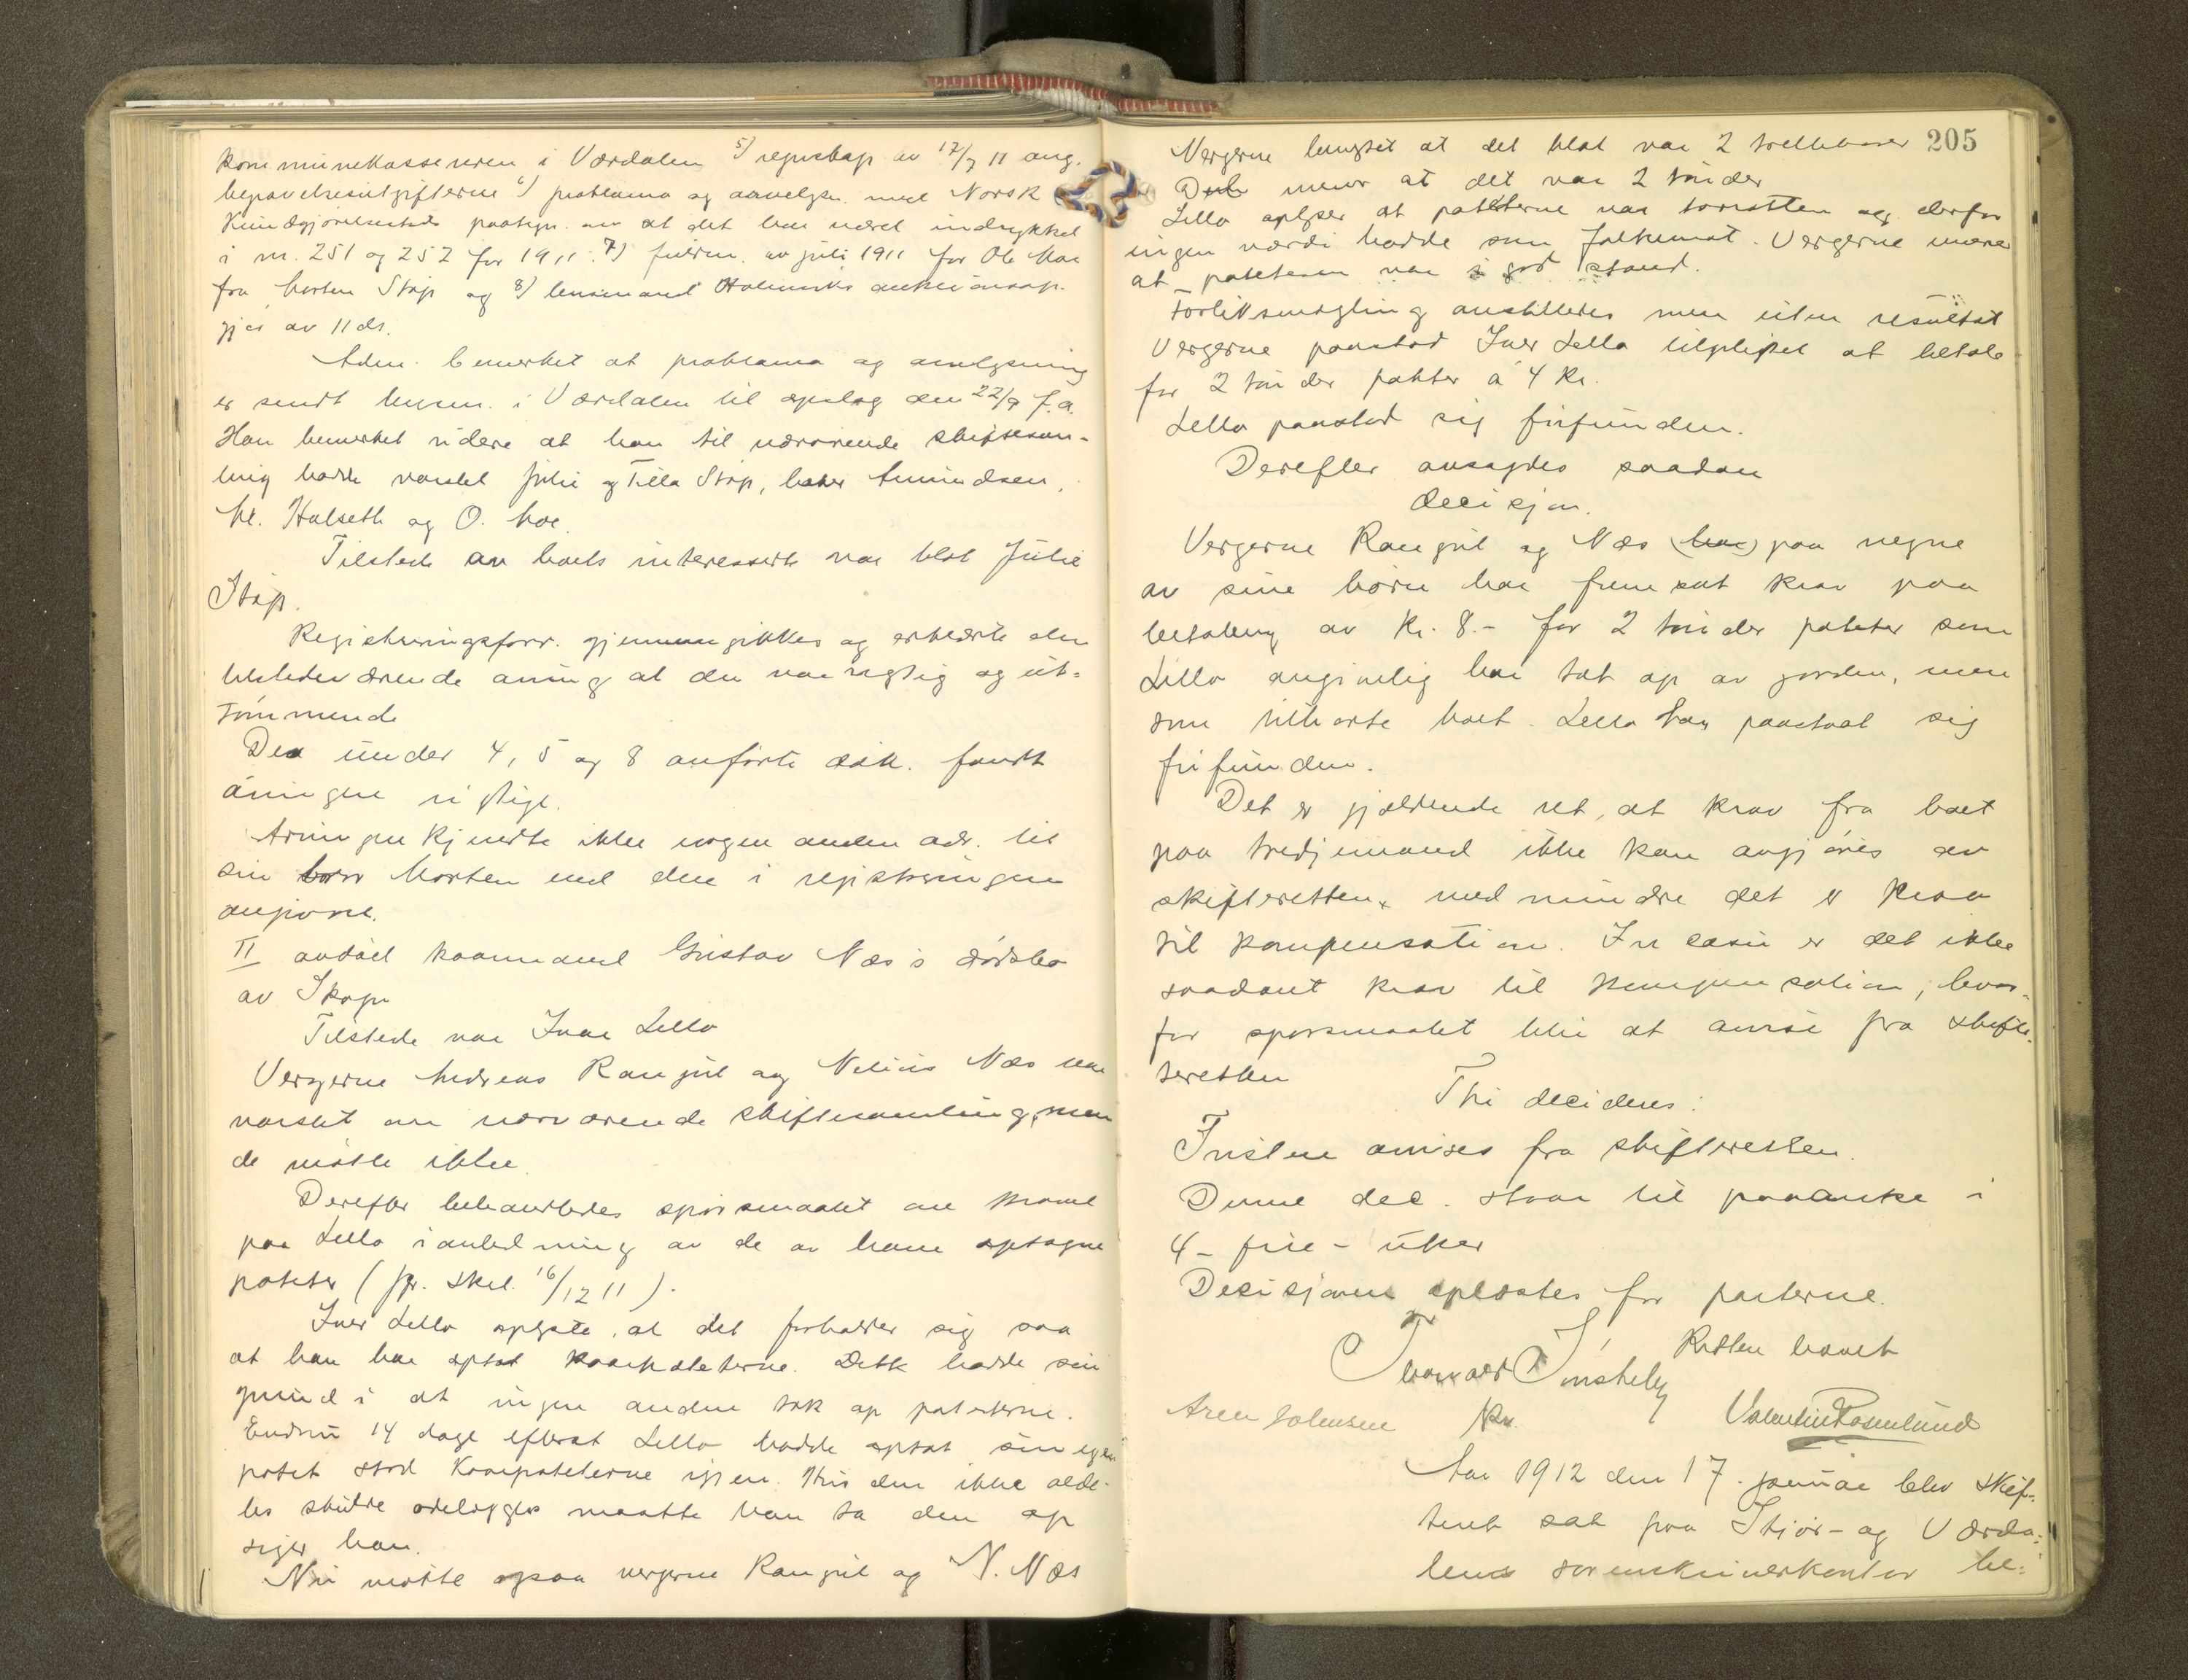 kommunekassereren i Værdalen 5) regnskap av 12/7 11 ang.
begravelsesutgifterne 6) proklama og avvelgsn. med Norsk
Kundgjörelsestid. paategn. om at det har været indrykket
i nr. 251 og 252 for 1911. 7) fuldm. av juli 1911 for Ole Moe
fra Morten Stöp og 8) lensmand Holmviks auktionsop-
gjør av 11 ds.
Adm. bemerket at proklama og avvelgsning
er sendt lensm. i Værdalen til opslag den 22/9 f.a.
Han bemerket videre at han til nærværende skiftesam-
ling hadde varslet Julie og Tilla Stöp, Amundsen,
Halseth og O. Moe.
Tilstede av boets interesserte var blot Julie
Stöp.
Registreringsforr. gjennemgikkes og erklærte den
tilstedeværende arving at den var rigtig og ut-
tömmende
De under 4, 5 og 8 anförte dok. fandt
arvingen rigtige.
Arvingen kjendte ikke nogen anden adr. til
sin bror Morten end den i registreringen
angivne.
II avdød kaarmand Gustav Næs's dødsbo
av Skogn
Tilstede var Ivar Lello
Vergerne Andreas Rangul og Nelius Næs var
varslet om nærværende skiftesamling, men
de mötte ikke.
Derefter behandledes spörsmaalet om kravet
paa Lello i anledning av de av ham optagne
poteter (jfr. skel. 16/12 11).
Iver Lello oplyste, at det forholder sig saa
at han har optat kaarpoteterne. Dette hadde sin
grund i at ingen anden tok op poteterne.
Endnu 14 dage efterat Lello hadde optat sin egen
potet stod Kaarpoteterne igjen. Hvis den ikke alde-
les skulde ödelægges maatte han ta den op
siger han.
Nu mötte ogsaa vergerne Rangul og N. Næs
205
Vergerne at det blot var 2
mener at det var 2 tönder
Lello oplyser at poteterne var torraatten og derfor
ingen værdi hadde som folkemat. Vergerne mener
at poteten var i god stand.
Forliksmægling anstilledes men uten resultat
Vergerne paastod Iver Lello tilpligtet at betale
for 2 tönder poteter a 4 kr.
Lello paastod sig frifunden.
Derefter avsagdes saadan
decisjon.
Vergerne Rangul og Næs (har) paa vegne
av sine börn har fremsat krav paa
betaling av kr. 8.- for 2 tönder poteter som
Lello angivelig har tat op av jorden, men
som tilhörte boet. Lello har paastaat sig
frifunden.
Det er gjældende ret, at krav fra boet
paa tredjemand ikke kan avgjöres av
skifteretten, medmindre det er krav
til kompensation. In casu er det ikke
saadant krav til kompensation, hvor-
for spörsmaalet blir at avvise fra skifte-
retten
Thi decideres:
Tvisten avvises fra skifteretten.
Denne dec. staar til paaanke i
4 - fire - uker
Decisjonen oplæstes for parterne.
Retten hævet
Valentin Rosenlund
Aar 1912 den 17. januar blev skif-
teret sat paa Stjör- og Værda-
lens sorenskriverkontor be-